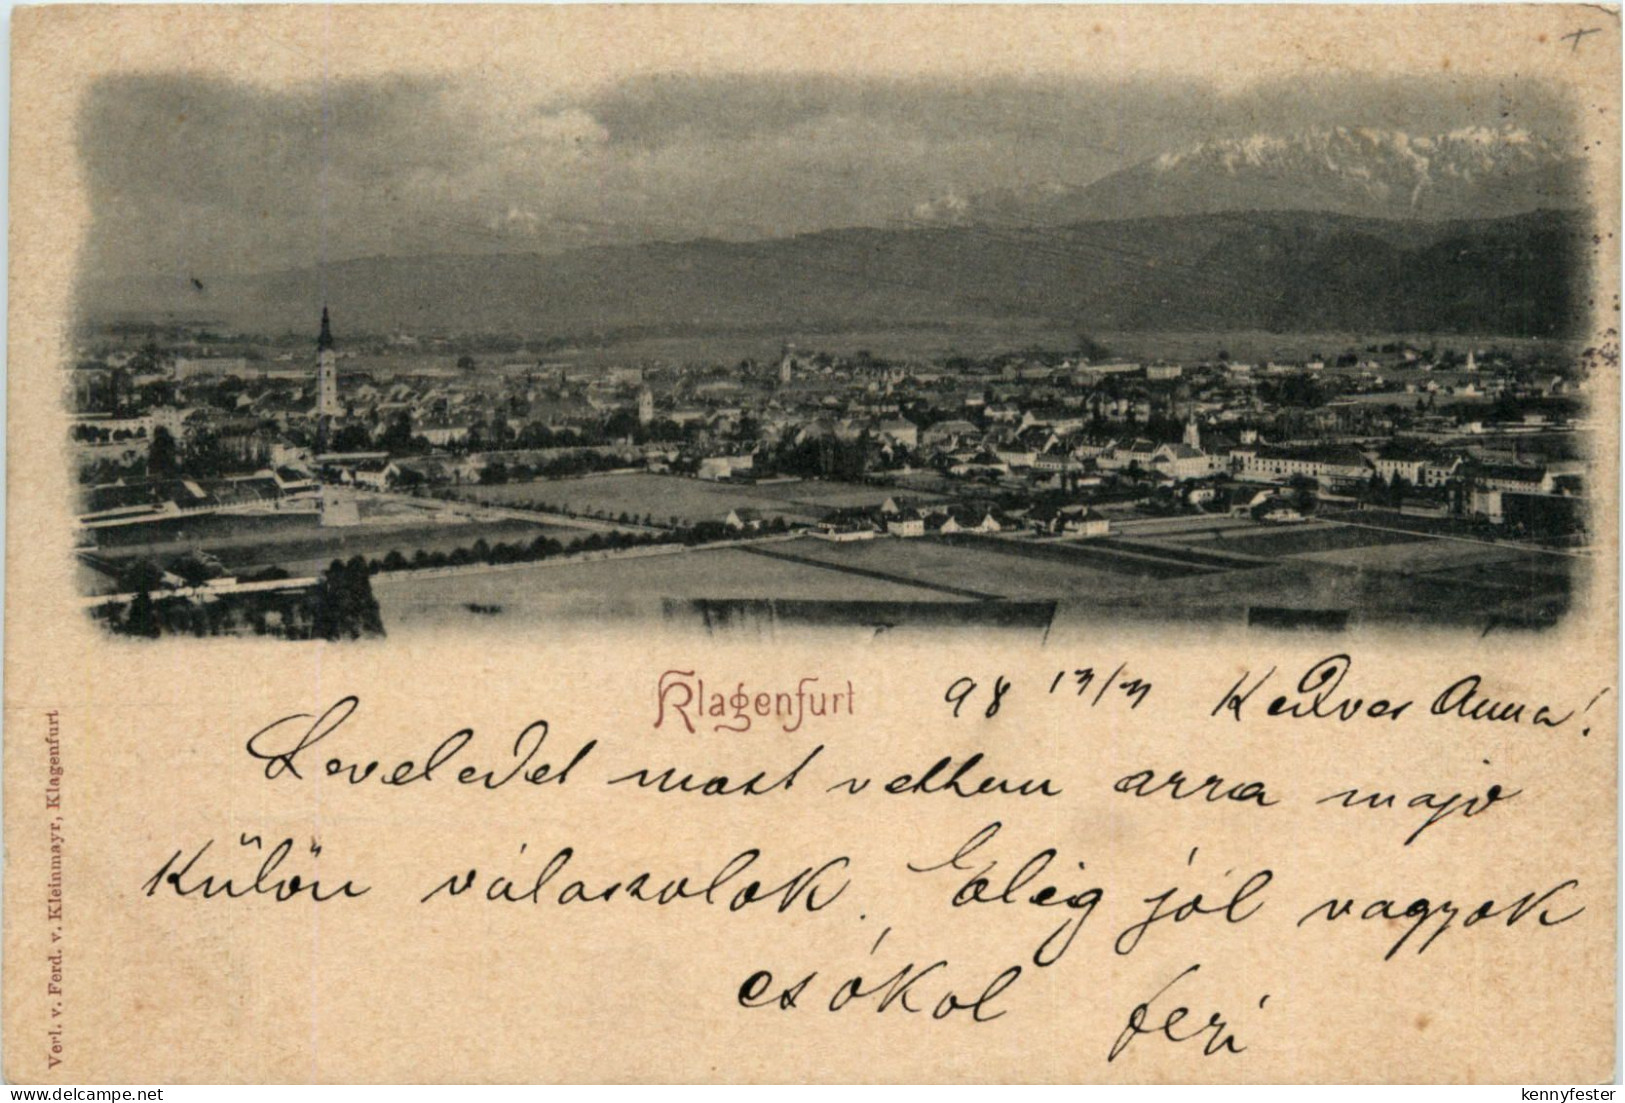 Klagenfurt 98 Kedves Anna!
Leveledet most vettem arra majd
külön válaszolok. Elég jól vagyok
csókol Feri
Verl. v. Ferd. v. Kleinmayr, Klagenfurt
delcampe.net
kennyfester